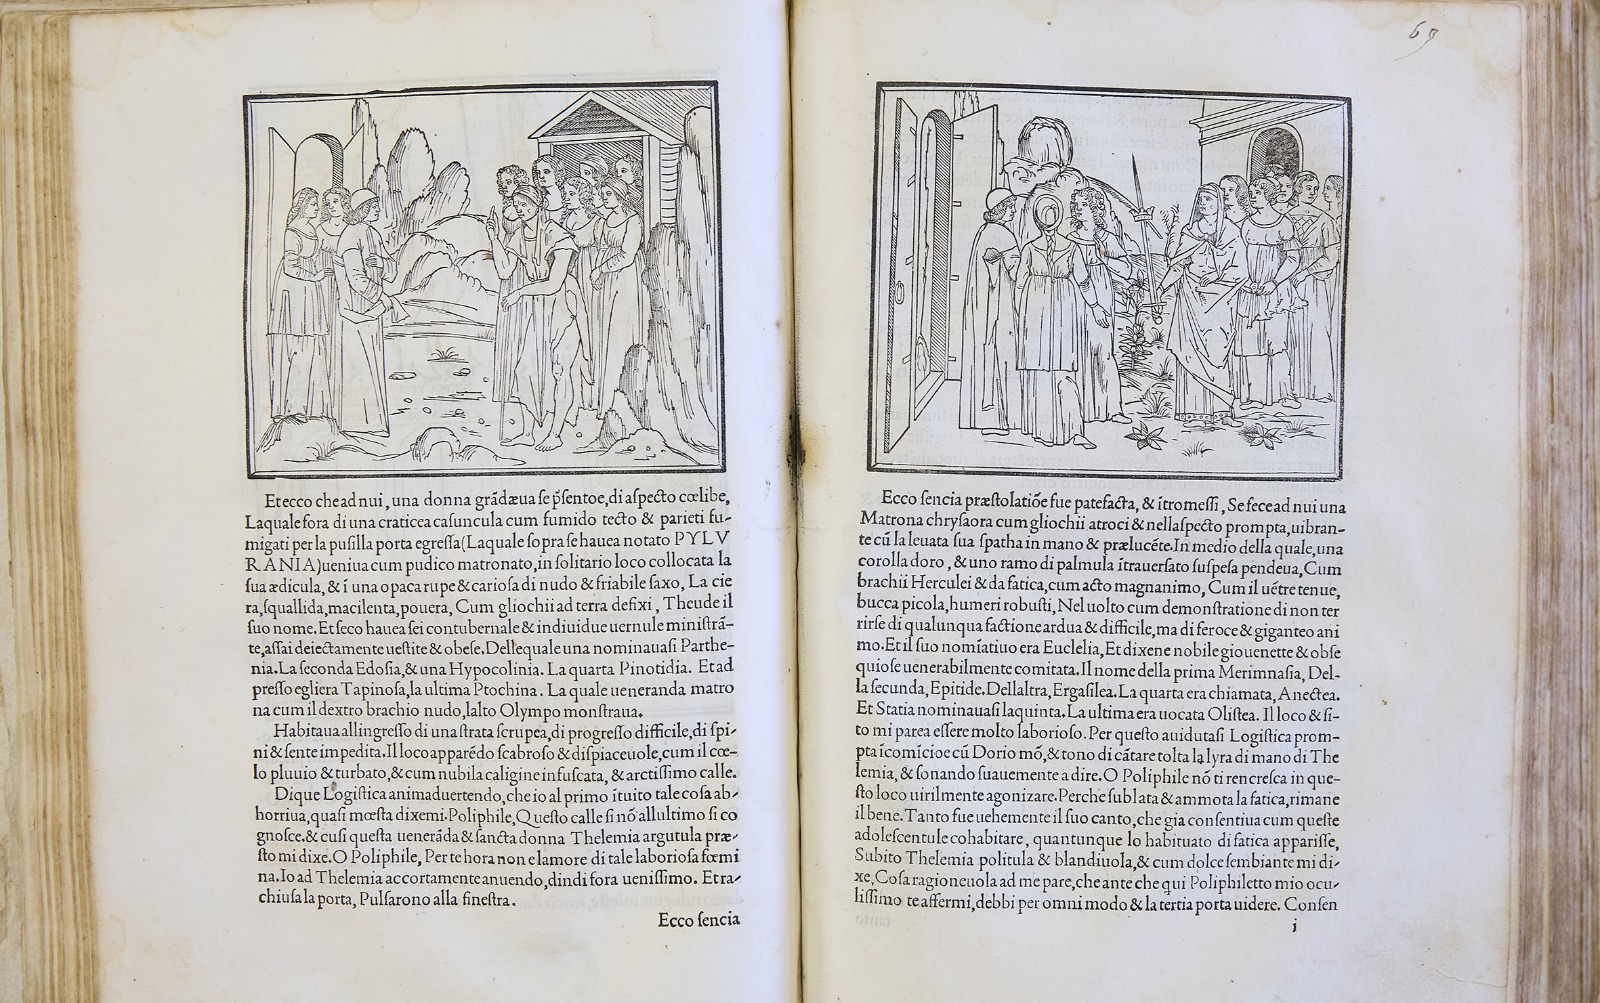 Et ecco che ad nui, una donna grãdæua se p̃sentoe, di aspecto cœlibe,
Laquale fora di una craticea casuncula cum fumido tecto & parieti fu-
migati per la pusilla porta egressa (Laquale sopra se hauea notato PYLV
RANIA) ueniua cum pudico matronato, in solitario loco collocata la
sua ædicula, & ĩ una opaca rupe & cariosa di nudo & friabile saxo, La cie
ra, squallida, macilenta, pouera, Cum gliochii ad terra defixi, Theude il
suo nome. Et seco hauea sei contubernale & indiuidue uernule ministrã-
te, assai deiectamente uestite & obese. Dellequale una nominauasi Parthe-
nia. La seconda Edosia, & una Hypocolinia. La quarta Pinotidia. Et ad
presso egli era Tapinosa, la ultima Ptochina. La quale ueneranda matro
na cum il dextro brachio nudo, lalto Olympo monstraua.
Habitaua allingresso di una strata scrupea, di progresso difficile, di spi-
ni & sente impedita. Il loco apparẽdo scabroso & dispiaceuole, cum il cœ-
lo pluuio & turbato, & cum nubila caligine infuscata, & arctissimo calle.
Dique Logistica animaduertendo, che io al primo ĩtuito tale cosa ab-
horriua, quasi mœsta dixemi. Poliphile, Questo calle si nõ allultimo si co
gnosce. & cusi questa uenerãda & sancta donna Thelemia argutula præ-
sto mi dixe. O Poliphile, Per te hora non e lamore di tale laboriosa fœmi
na. Io ad Thelemia accortamente anuendo, dindi fora uenissimo. Et ra-
chiusa la porta, Pulsarono alla finestra.
Ecco sencia
69
Ecco sencia præstolatiõe fue patefacta, & ĩtromessi, Se fece ad nui una
Matrona chrysaora cum gliochii atroci & nellaspecto prompta, uibran-
te cũ la leuata sua spatha in mano & prælucẽte. In medio della quale, una
corolla doro, & uno ramo di palmula ĩtrauersato suspesa pendeua, Cum
brachii Herculei & da fatica, cum acto magnanimo, Cum il uẽtre tenue,
bucca picola, humeri robusti, Nel uolto cum demonstratione di non ter
rirse di qualunqua factione ardua & difficile, ma di feroce & giganteo ani
mo. Et il suo nomĩatiuo era Euclelia, Et dixene nobile giouenette & obse
quiose uenerabilmente comitata. Il nome della prima Merimnasia, Del-
la secunda, Epitide. Dellaltra, Ergasilea. La quarta era chiamata, Anectea.
Et Statia nominauasi la quinta. La ultima era uocata Olistea. Il loco & si-
to mi parea essere molto laborioso. Per questo auidutasi Logistica prom-
pta ĩcomĩcioe cũ Dorio mõ, & tono di cãtare tolta la lyra di mano di The
lemia, & sonando suauemente a dire. O Poliphile nõ ti rencresca in que-
sto loco uirilmente agonizare. Perche sublata & ammota la fatica, rimane
il bene. Tanto fue uehemente il suo canto, che gia consentiua cum queste
adolescentule cohabitare, quantunque lo habituato di fatica apparisse,
Subito Thelemia politula & blandiuola, & cum dolce sembiante mi di-
xe, Cosa ragioneuola ad me pare, che ante che qui Poliphiletto mio ocu-
lissimo te affermi, debbi per omni modo & la tertia porta uidere. Consen
i